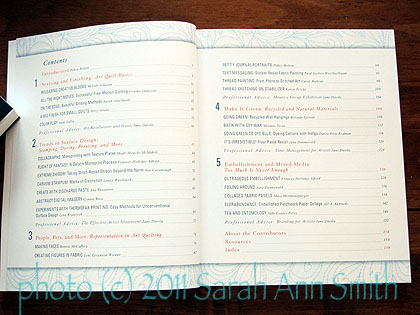 Contents
Introduction Pokey Bolton
1 Starting and Finishing: Art Quilt Basics
RELEASING CREATIVE BLOCKS
ALL THE RIGHT MOVES: Successful Free-Motion Quilting
ON THE EDGE: Beautiful Binding Methods Sarah Ann Smith
A BIG FINISH FOR SMALL QUILTS
COLOR PLAY Jane Dávila
Professional Advice: Art Resolutions and Goals Jane Dávila
2 Trends in Surface Design:
Stamping, Dyeing, Painting, and More
COLLAGRAPHS: Monoprinting with Texture Plates
FLIGHT OF FANTASY: A Gelatin Monoprint Process Frances Holliday Alford
EXTREME SHIBORI: Taking Stitch-Resist Shibori Beyond the Norm
CANVAS STAMPLAR: Marks of Distinction Laura Wasilowski
CREATE WITH DISCHARGE PASTE
ABSTRACT DIGITAL IMAGERY
EXPERIMENTS WITH THERMOFAX PRINTING: Easy Methods for Unconventional
Surface Design Lynn Krawczyk
Professional Advice: The Effective Artist Statement Jane Dávila
3 People, Pets, and More: Representation in Art Quilting
MAKING FACES Bonnie McCaffery
CREATING FIGURES IN FABRIC Leni Levenson Wiener
PETTY JOURNAL PORTRAITS Pokey Bolton
TEXT MESSAGING: Sticker-Resist Fabric Painting
THREAD PAINTING: From Photo to Stitched Art
THREAD SKETCHING ON STABILIZER
Professional Advice: Mount a Group Exhibition Jane Dávila
4 Make It Green: Recycled and Natural Materials
GOING GREEN: Recycled Wall Hangings
BATIK WITH SOY WAX Melanie Testa
GOING GREEN TO DYE BLUE: Dyeing Cottons with Indigo
IT'S IRRESISTIBLE! Flour Paste Resist Jane Dunnewold
Professional Advice: Time Management for Artists Jane Dávila
5 Embellishment and Mixed Media:
Too Much Is Never Enough
OUTRAGEOUS EMBELLISHMENT Frances Holliday Alford
FOILING AROUND Jane Dunnewold
COLLAGED FABRIC PANELS
FLORABUNDANCE: Embellished Patchwork Paper Collage
TEA AND ENTOMOLOGY Judy Coates Perez
Professional Advice: Branding for Artists Jane Dávila
About the Contributors
Resources
Index
photo (c) 2011 Sarah Ann Smith